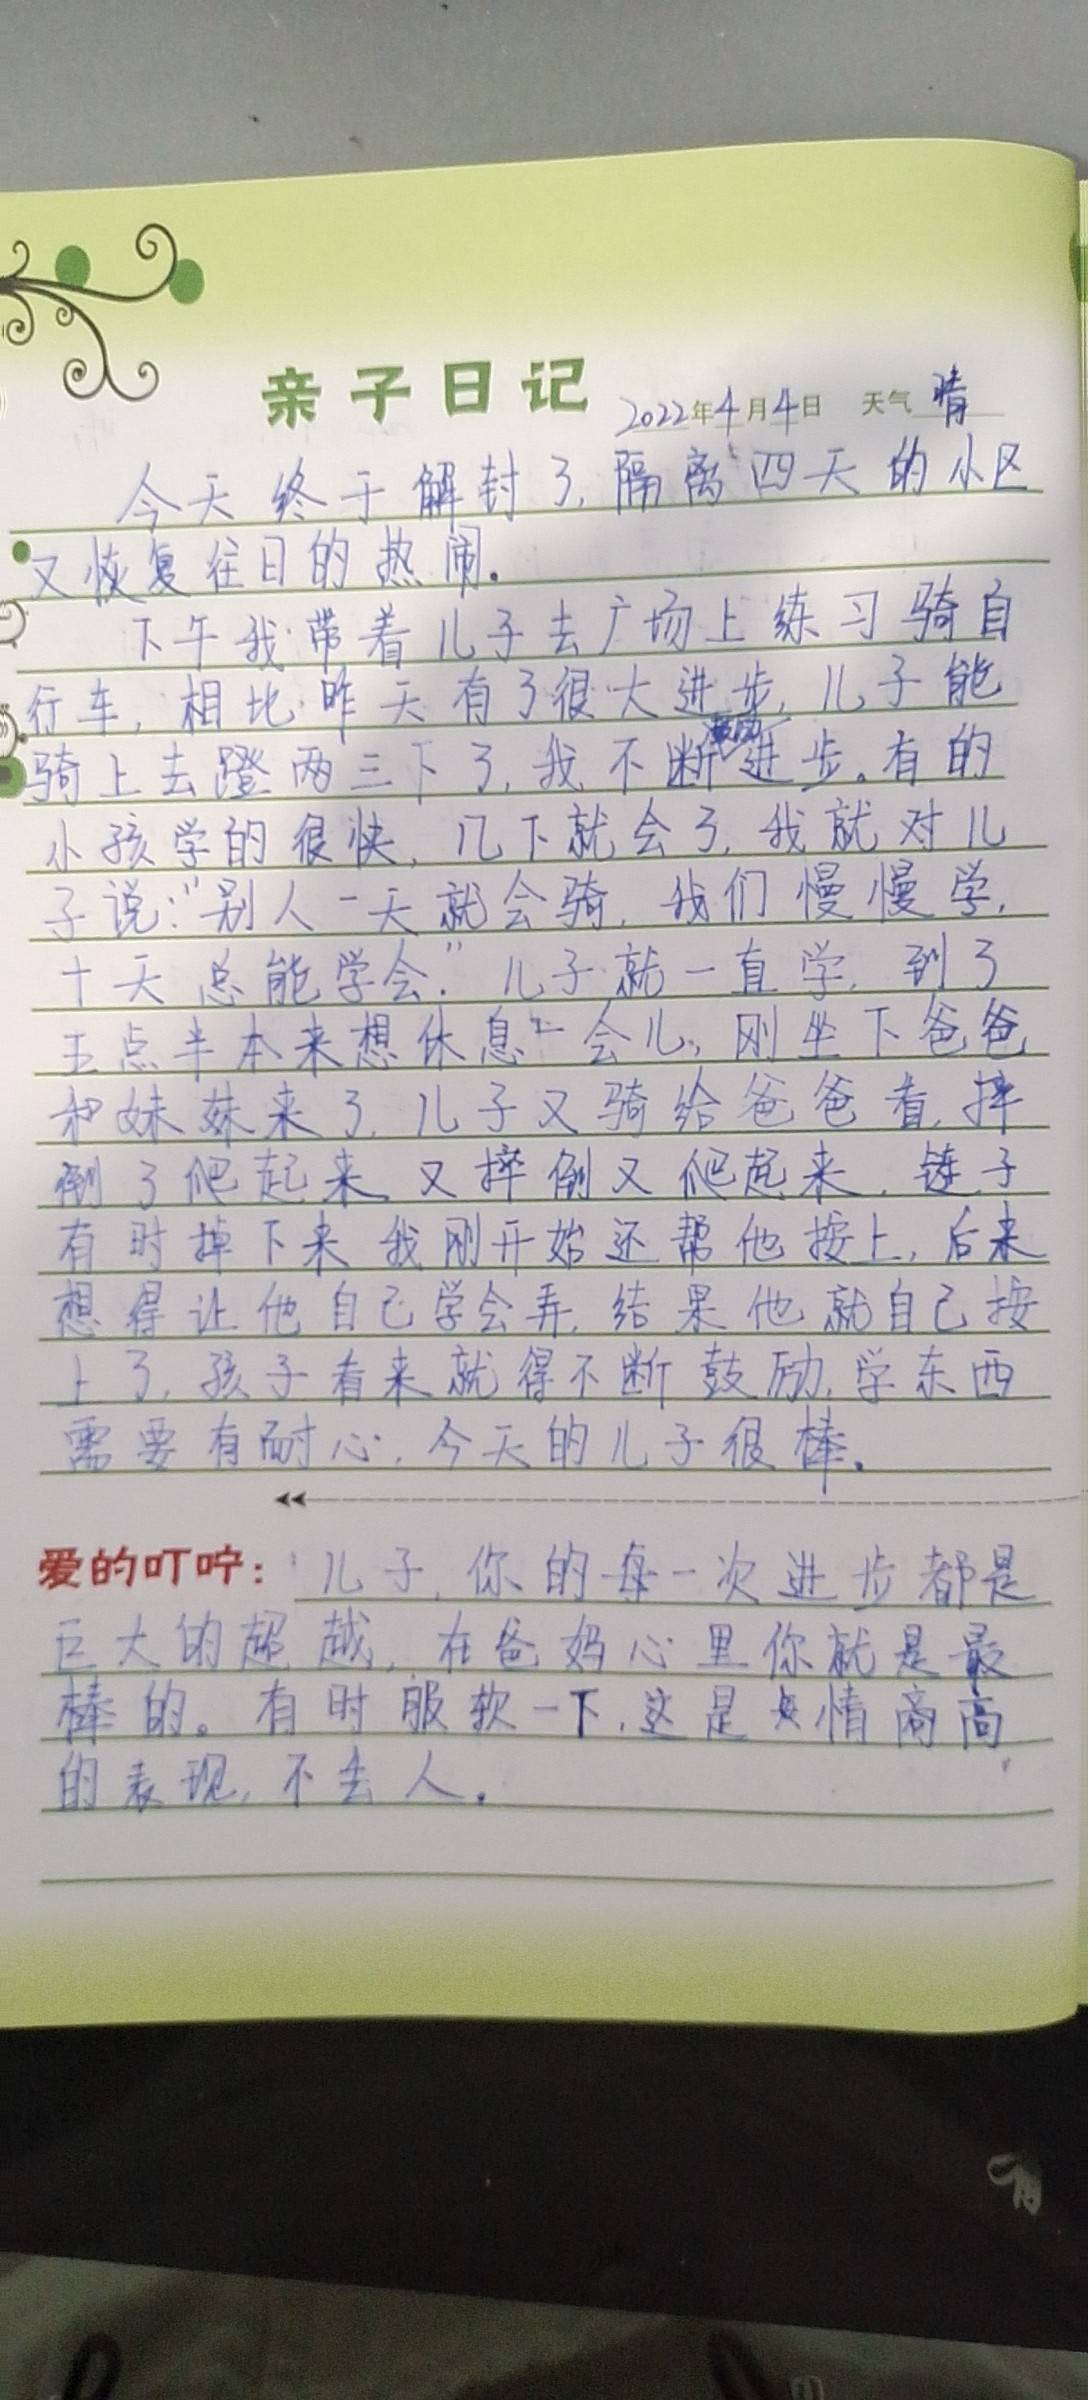 亲子日记 2022年4月4日 天气 晴
今天终于解封了,隔离四天的小区
又恢复往日的热闹。
下午我带着儿子去广场上练习骑自
行车,相比昨天有了很大进步,儿子能
骑上去蹬两三下了,我不断鼓励进步。有的
小孩学的很快,几下就会了,我就对儿
子说:“别人一天就会骑,我们慢慢学,
十天总能学会.”儿子就一直学,到了
五点半本来想休息一会儿,刚坐下爸爸
和妹妹来了,儿子又骑给爸爸看,摔
倒了爬起来,又摔倒又爬起来,链子
有时掉下来 我刚开始还帮他按上,后来
想得让他自己学会弄,结果他就自己按
上了,孩子看来就得不断鼓励,学东西
需要有耐心,今天的儿子很棒。
爱的叮咛:儿子,你的每一次进步都是
巨大的超越,在爸妈心里你就是最
棒的。有时服软一下,这是情商高
的表现,不丢人。